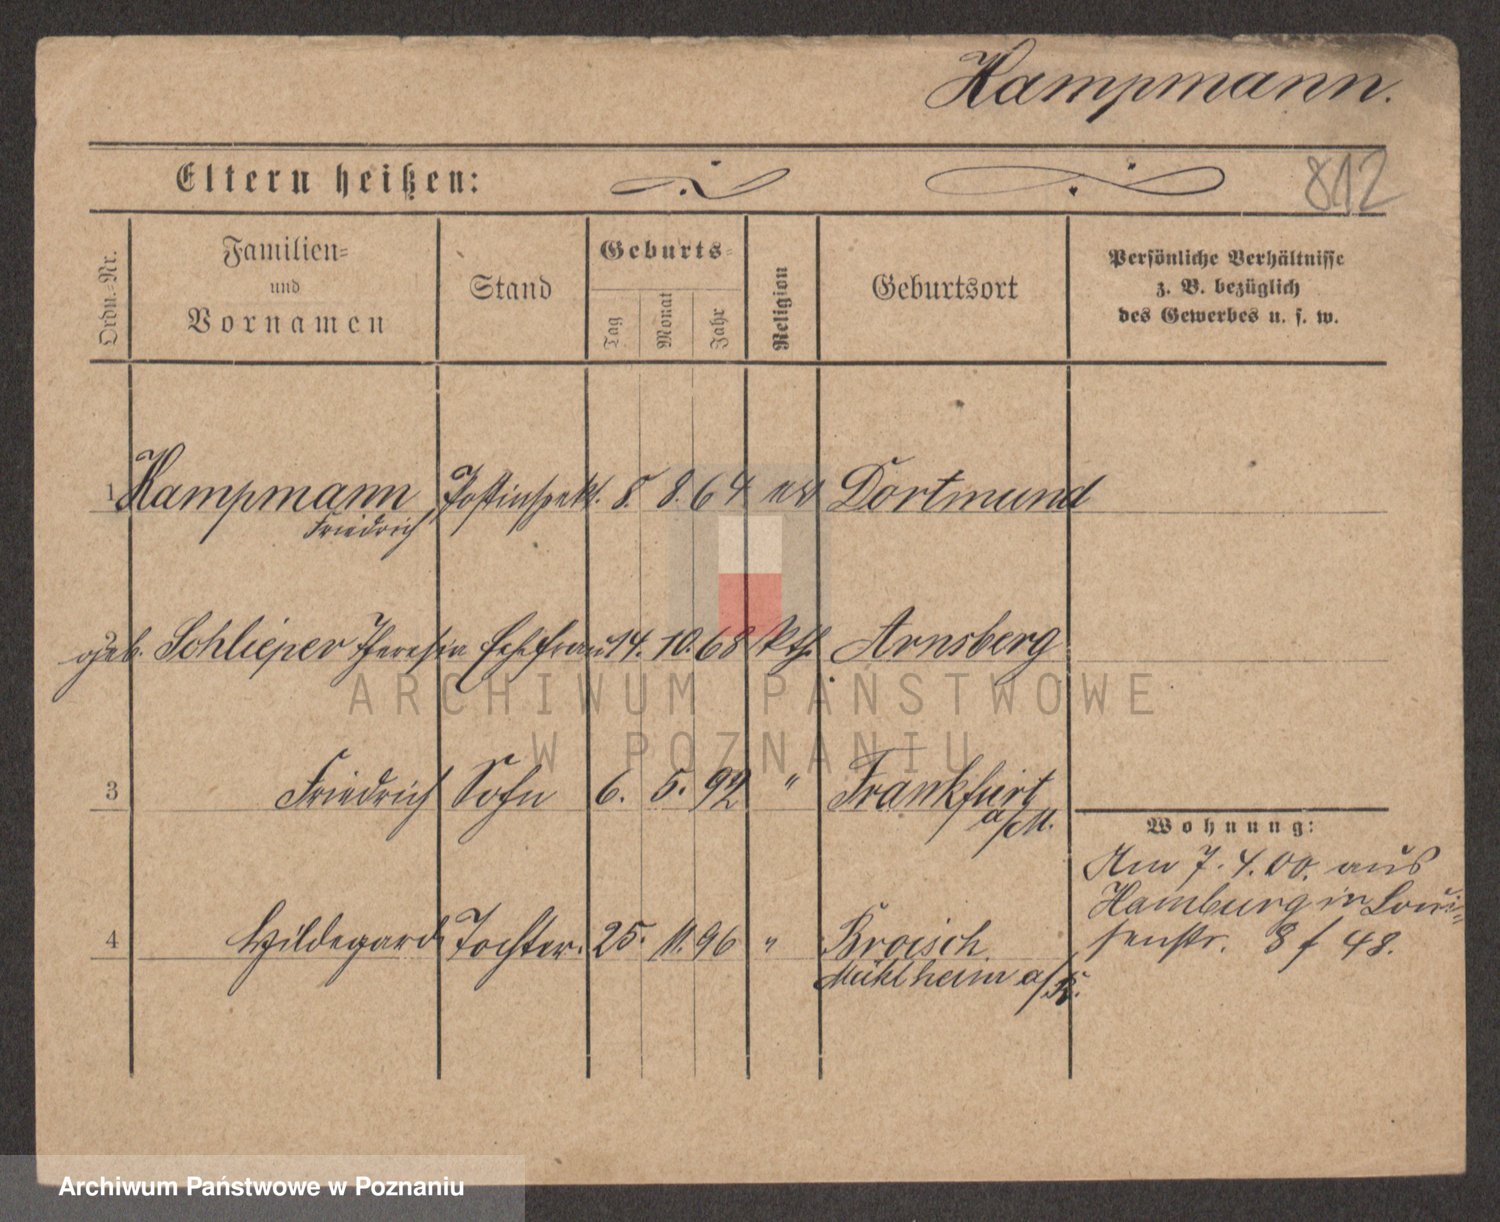 Kampmann.
Eltern heißen:
812
Ordn.-Nr.
Familien-
und
Vornamen
Stand
Geburts-
Tag
Monat
Jahr
Religion
Geburtsort
Persönliche Verhältnisse
z. B. bezüglich
des Gewerbes u. s. w.
1 Kampmann, Postinspekt. 8. 8. 64 ev Dortmund
Friedrich
2 geb. Schlieper Theresia Ehefrau 14. 10. 68 kth. Arnsberg
ARCHIWUM PAŃSTWOWE
W POZNANIU
3 Friedrich Sohn 6. 5. 92 " Frankfurt
a/M.
Wohnung:
Am 7. 4. 00. aus
Hamburg in Loui-
senstr. 8 f 48.
4 Hildegard Tochter. 25. 11. 96 " Broich
Mühlheim a/R.
Archiwum Państwowe w Poznaniu